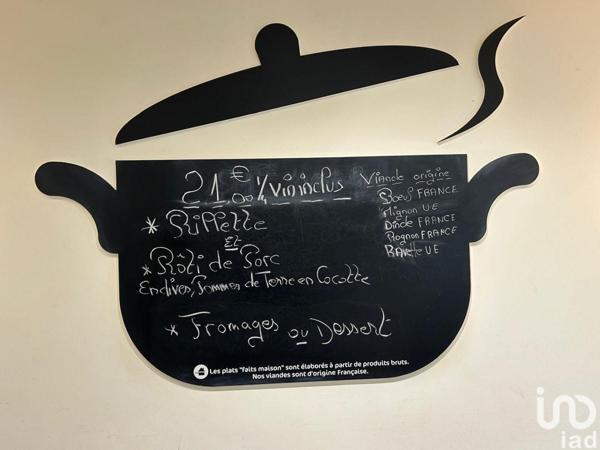 21.00€ ¼ vin inclus
* Buffette
Et
* Rôti de Porc
Endives, Pommes de Terre en Cocotte
* Fromages ou Dessert
Viande origine
Boeuf FRANCE
Mignon UE
Dinde FRANCE
Rognon FRANCE
Bavette UE
Les plats "faits maison" sont élaborés à partir de produits bruts.
Nos viandes sont d'origine Française.
iad